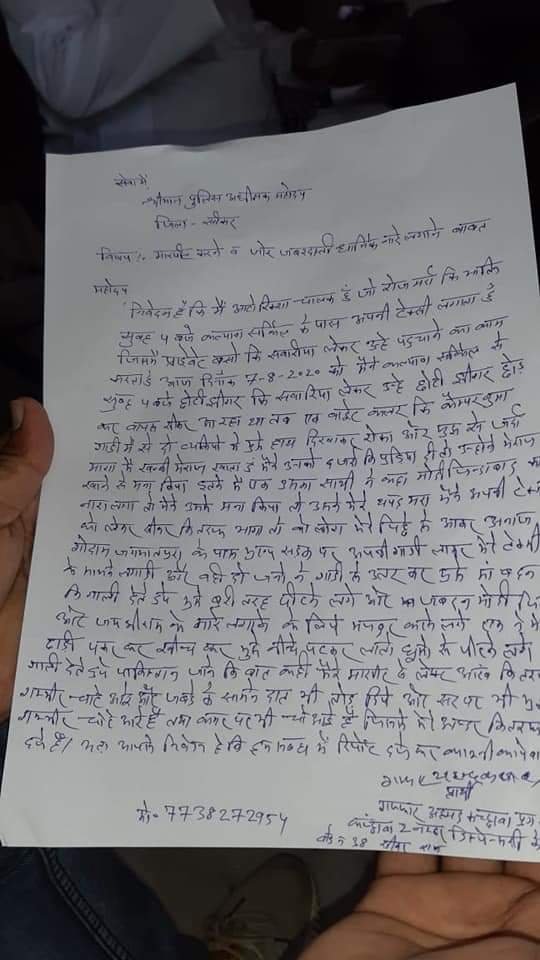 सेवा में
श्रीमान पुलिस अधीक्षक महोदय
जिला - सीकर
विषय :- मारपीट करने व जोर जबरदस्ती धार्मिक नारे लगाने बाबत
महोदय
निवेदन है कि मैं आटो रिक्शा चालक हुं जो रोज मर्रा कि भांति
सुबह 4 बजे कल्याण सर्किल के पास अपनी टेक्सी लगाता हुं
जिसमें प्राईवेट बसों कि सवारीया लेकर उन्हे पहुचाने का काम
करता हुं आज दिनांक 7-8-2020 को मैंने कल्याण सर्किल से
सुबह 4 बजे छोटी झीगर कि सवारिया लेकर उन्हे छोटी झीगर छोड़
कर वापस सीकर आ रहा था तब एक वाईट कलर कि
गाडी में से दो व्यक्तियो ने मुझे हाथ दिखाकर रोका और मुझ से जर्दा
मांगा मैं उनको जर्दा कि पुडिया दी तो उन्होने
खाने से मना किया इतने में एक उनका साथी ने कहा मोदी जिन्दाबाद का
नारा लगा तो मैंने उनको मना किया तो उसने मेरे थप्पड़ मारा मैंने अपनी टेक्सी
को लेकर सीकर कि तरफ भागा तो वो लोग मेरे पिछे से आकर अनाज
गोदाम जगमालपुरा के पास मुख्य सड़क पर अपनी गाडी लाकर मेरे टेक्सी
के सामने लगादी और वही दो जनो ने गाडी से उतर कर मुझे मां बहन
कि गाली देते हुये मुझे बुरी तरह पीटने लगे और जबरन मोदी जि
और जय श्रीराम के नारे लगाने के लिये मजबूर करने लगे
दाडी पकड कर खीच कर मुझे नीचे पटकर लातो घुसो से पीटने लगे
गाली देते हुये पाकिस्तान जाने कि बात कही मेरे मारपीट से आंख कि तरफ
गम्भीर चोटे आई और जबडे के सामने दात भी तोड़ दिये और सर पर भी
गम्भीर चोटे आई है तथा कमर पर भी चोट आई है
है। अतः आपसे निवेदन है कि इस सम्बन्ध में रिपोर्ट दर्ज कर
प्रार्थी
गफ्फार अहमद कच्छावा पुत्र
वार्ड न 38 सीकर राज
मो० 7738272954